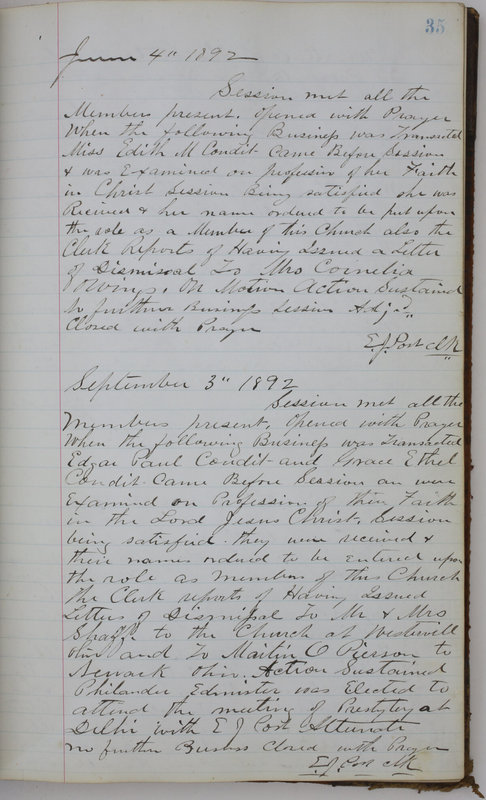 35
June 4" 1892
Session met all the
Members present. Opened with Prayer
When the following Business was Transacted
Miss Edith M Condit Came Before Session
& was Examined on profession of her Faith
in Christ Session Being satisfied she was
Received & her name ordued to be put upon
the role as a Member of this Church also the
Clerk Reports of Having Issued a Letter
of Dismissal To Mrs Cornelia
Owings. On Motion Action Sustained
No further Business Session Adj.d
Closed with Prayer
E. J. Post Clk
September 3" 1892
Session met all the
Members present. Opened with Prayer
When the following Business was Transacted
Edgar Paul Condit and Grace Ethel
Condit Came Before Session an were
Examind on Profession of their Faith
in the Lord Jesus Christ. Session
being satisfied they were received &
their names ordued to be entered upon
the role as members of this Church
the Clerk reports of Having Issued
Letters of Dismissal To Mr & Mrs
to the Church at Westervill
Ohio and To Martin O Pierson to
Newark Ohio. Action Sustained
Philander Edmister was Elected to
attend the meeting of Presbytery at
Delhi with E J Post Alternate
no further Business Closed with Prayer
E. J. Post Clk